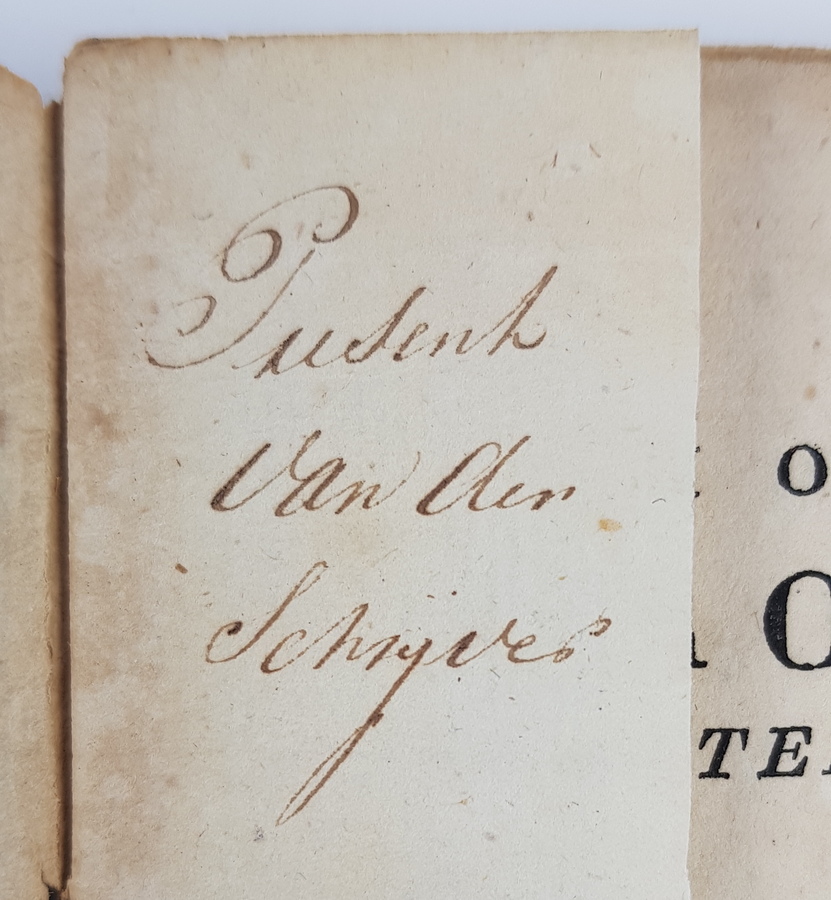 Present
Van den
Schryver
TE